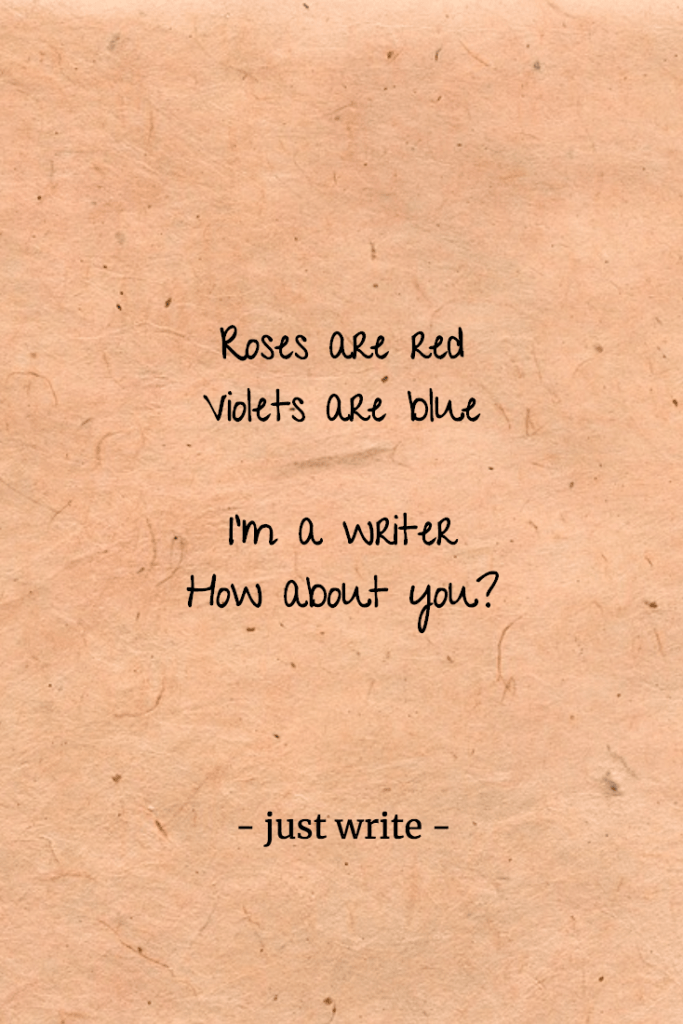 Roses are red
Violets are blue
I'm a writer
How about you?
- just write -